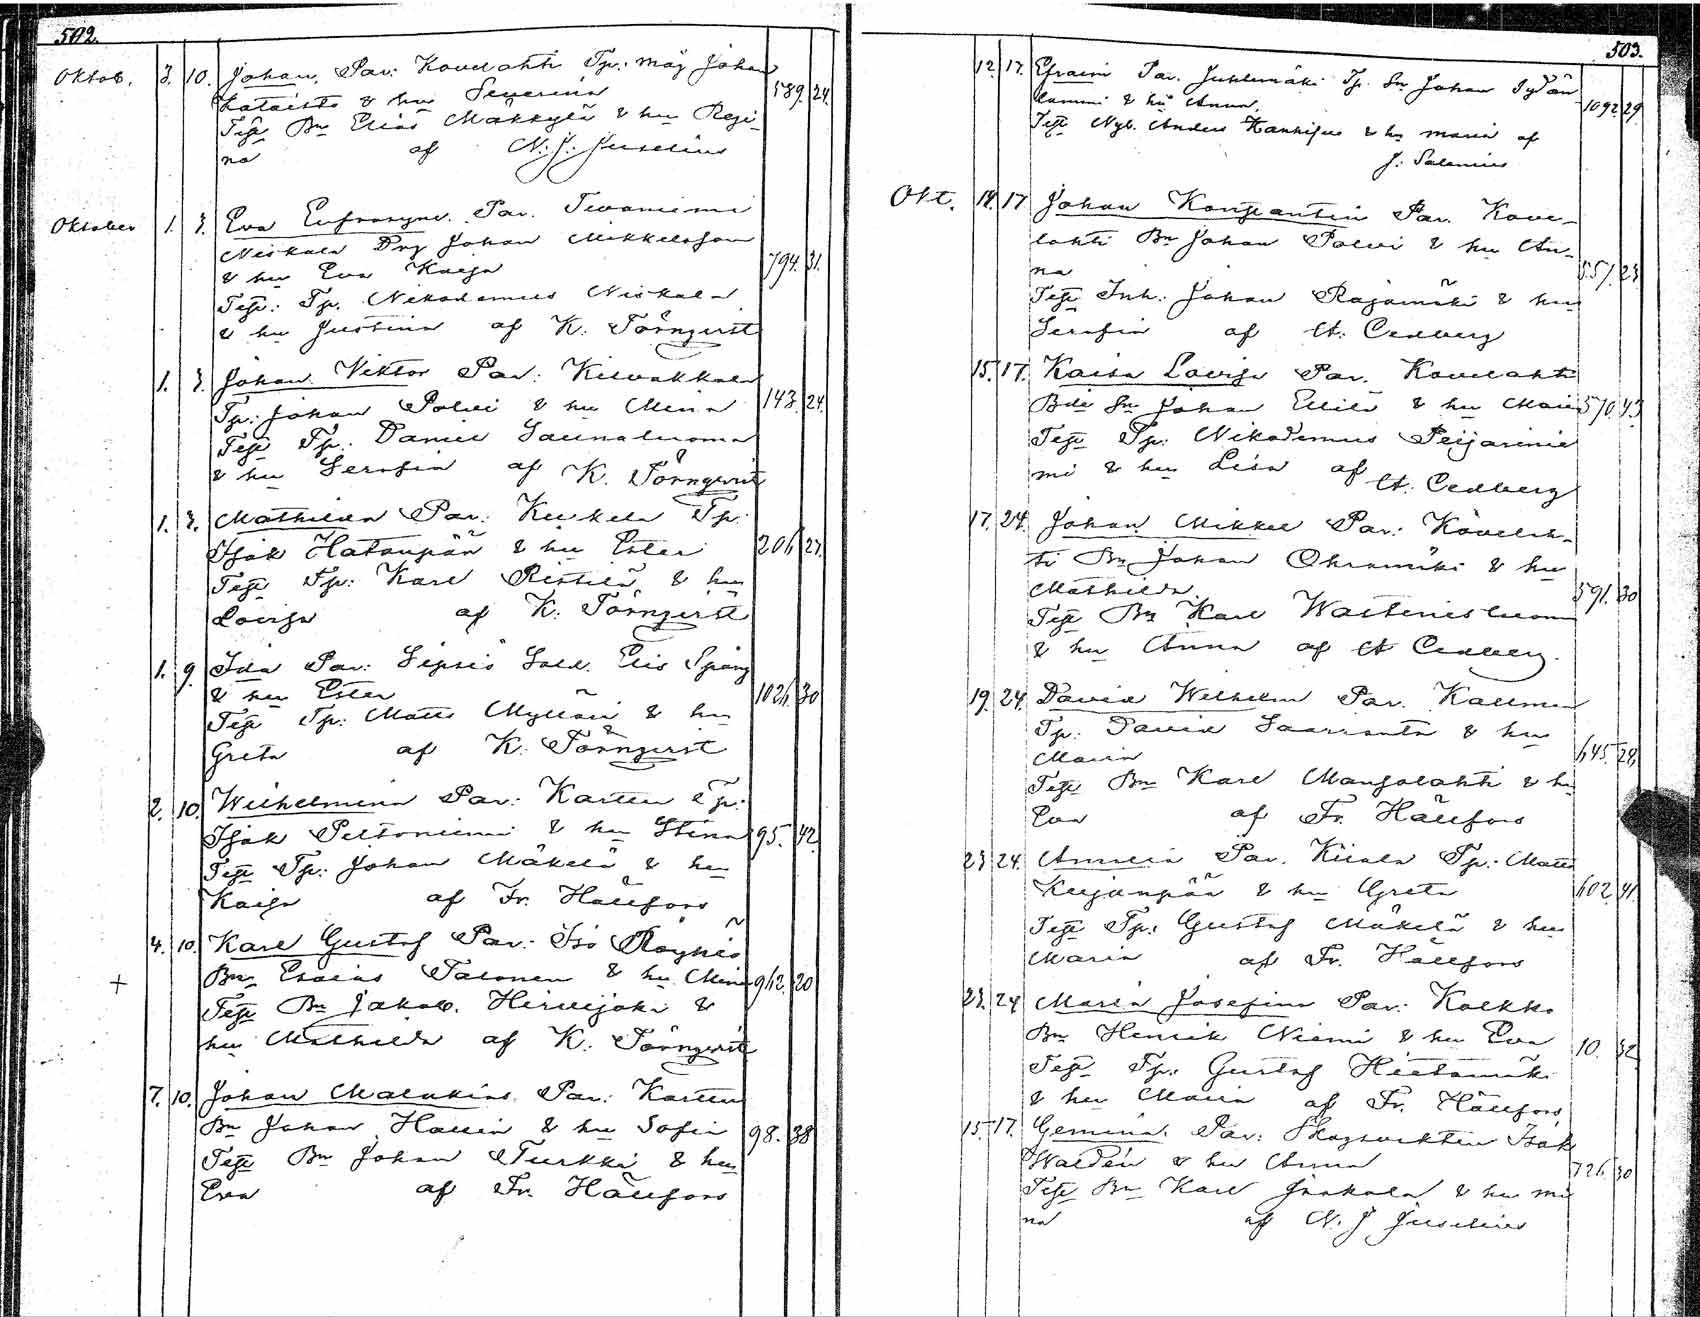 502.
Oktob. 3. 10. Johan. Par: Kovelahti Tp: måg Johan
Kataisto & hu Severina 589. 24.
Test Bn Elias Mäkkylä & hu Regi-
na af N. J. Juselius
Oktober 1. 3. Eva Eufrosyne. Par. Tevaniemi
Niskala Drg Johan Mikkelsson
& hu Eva Kaisa 794. 31.
Test: Tp. Nikodemus Niskala
& hu Justina af K. Törnqvist
1. 3. Johan Viktor Par: Kilvakkala
Tp: Johan Polvi & hu Mina 143. 24.
Test Tp. Daniel Saunaluoma
& hu Serafia af K. Törnqvist
1. 3. Mathilda Par: Keikela Tp:
Isak Hatanpää & hu Ester 206 27.
Test Tp: Karl Ristilä & hu
Lovisa af K. Törnqvist
1. 9. Ida Par: Sipsiö Sold. Elis Spång
& hu Ester 1026 30
Test Tp: Matts Myllari & hu
Greta af K. Törnqvist
2. 10. Wilhelmina Par: Karttu Tp:
Isak Peltoniemi & hu Stina 95. 42
Test Tp: Johan Mäkelä & hu
Kaisa af Fr. Hällfors
4. 10. Karl Gustaf Par: Iso Röyhiö
+ Bn Esaias Talonen & hu Mina 962. 20
Test Bn Jakob Hirvijoki &
hu Mathilda af K. Törnqvist
7. 10. Johan Malakias Par: Karttu
Bn Johan Hallin & hu Sofia 98. 38
Test Bn Johan Turkki & hu
Eva af Fr. Hällfors
503.
12. 17. Efraim Par. Juhlamäki Tp. Sn Johan
& hu Anna. 1092 29.
Test Nyb. Anders & hu Maria af
J. Salenius
Okt. 14. 17 Johan Konstantin Par. Kove-
lahti Bn Johan Polvi & hu An-
na 557. 23
Test Inh. Johan Rajamäki & hu
Serafia af A. Cedberg
15. 17. Kaisa Lovisa Par. Kovelahti
Bde Sn Johan Ellilä & hu Maria 570 43
Test Tp: Nikodemus Peijarinie
mi & hu Lisa af
A. Cedberg
17. 24. Johan Mikkel Par: Kovelah-
ti Bn Johan Ohramäki & hu
Mathilda. 591. 30
Test Bn Karl Wasteniesluoma
& hu Anna af A Cedberg.
19. 24. David Wilhelm Par. Kallmu
Tp: David Saarranta & hu
Maria 645. 24
Test Bn Karl Mansolahti & hu
Eva af Fr. Hällfors
23 24. Amalia Par. Kiiala Tp: Matts
Kujanpää & hu Greta 602. 41.
Test Tp: Gustaf Mäkelä & hu
Maria af Fr. Hällfors
23. 24 Maria Josefina Par: Kolkko
Bn Henrik Niemi & hu Eva 10. 32
Test Tp: Gustaf Hietamäki
& hu Maria af Fr. Hällfors
15. 17. Gemina. Par: Skogsvaktin Isak
Waldén & hu Anna 726. 30
Test Bn Karl Jaakola & hu Mi
na af N. J Juselius